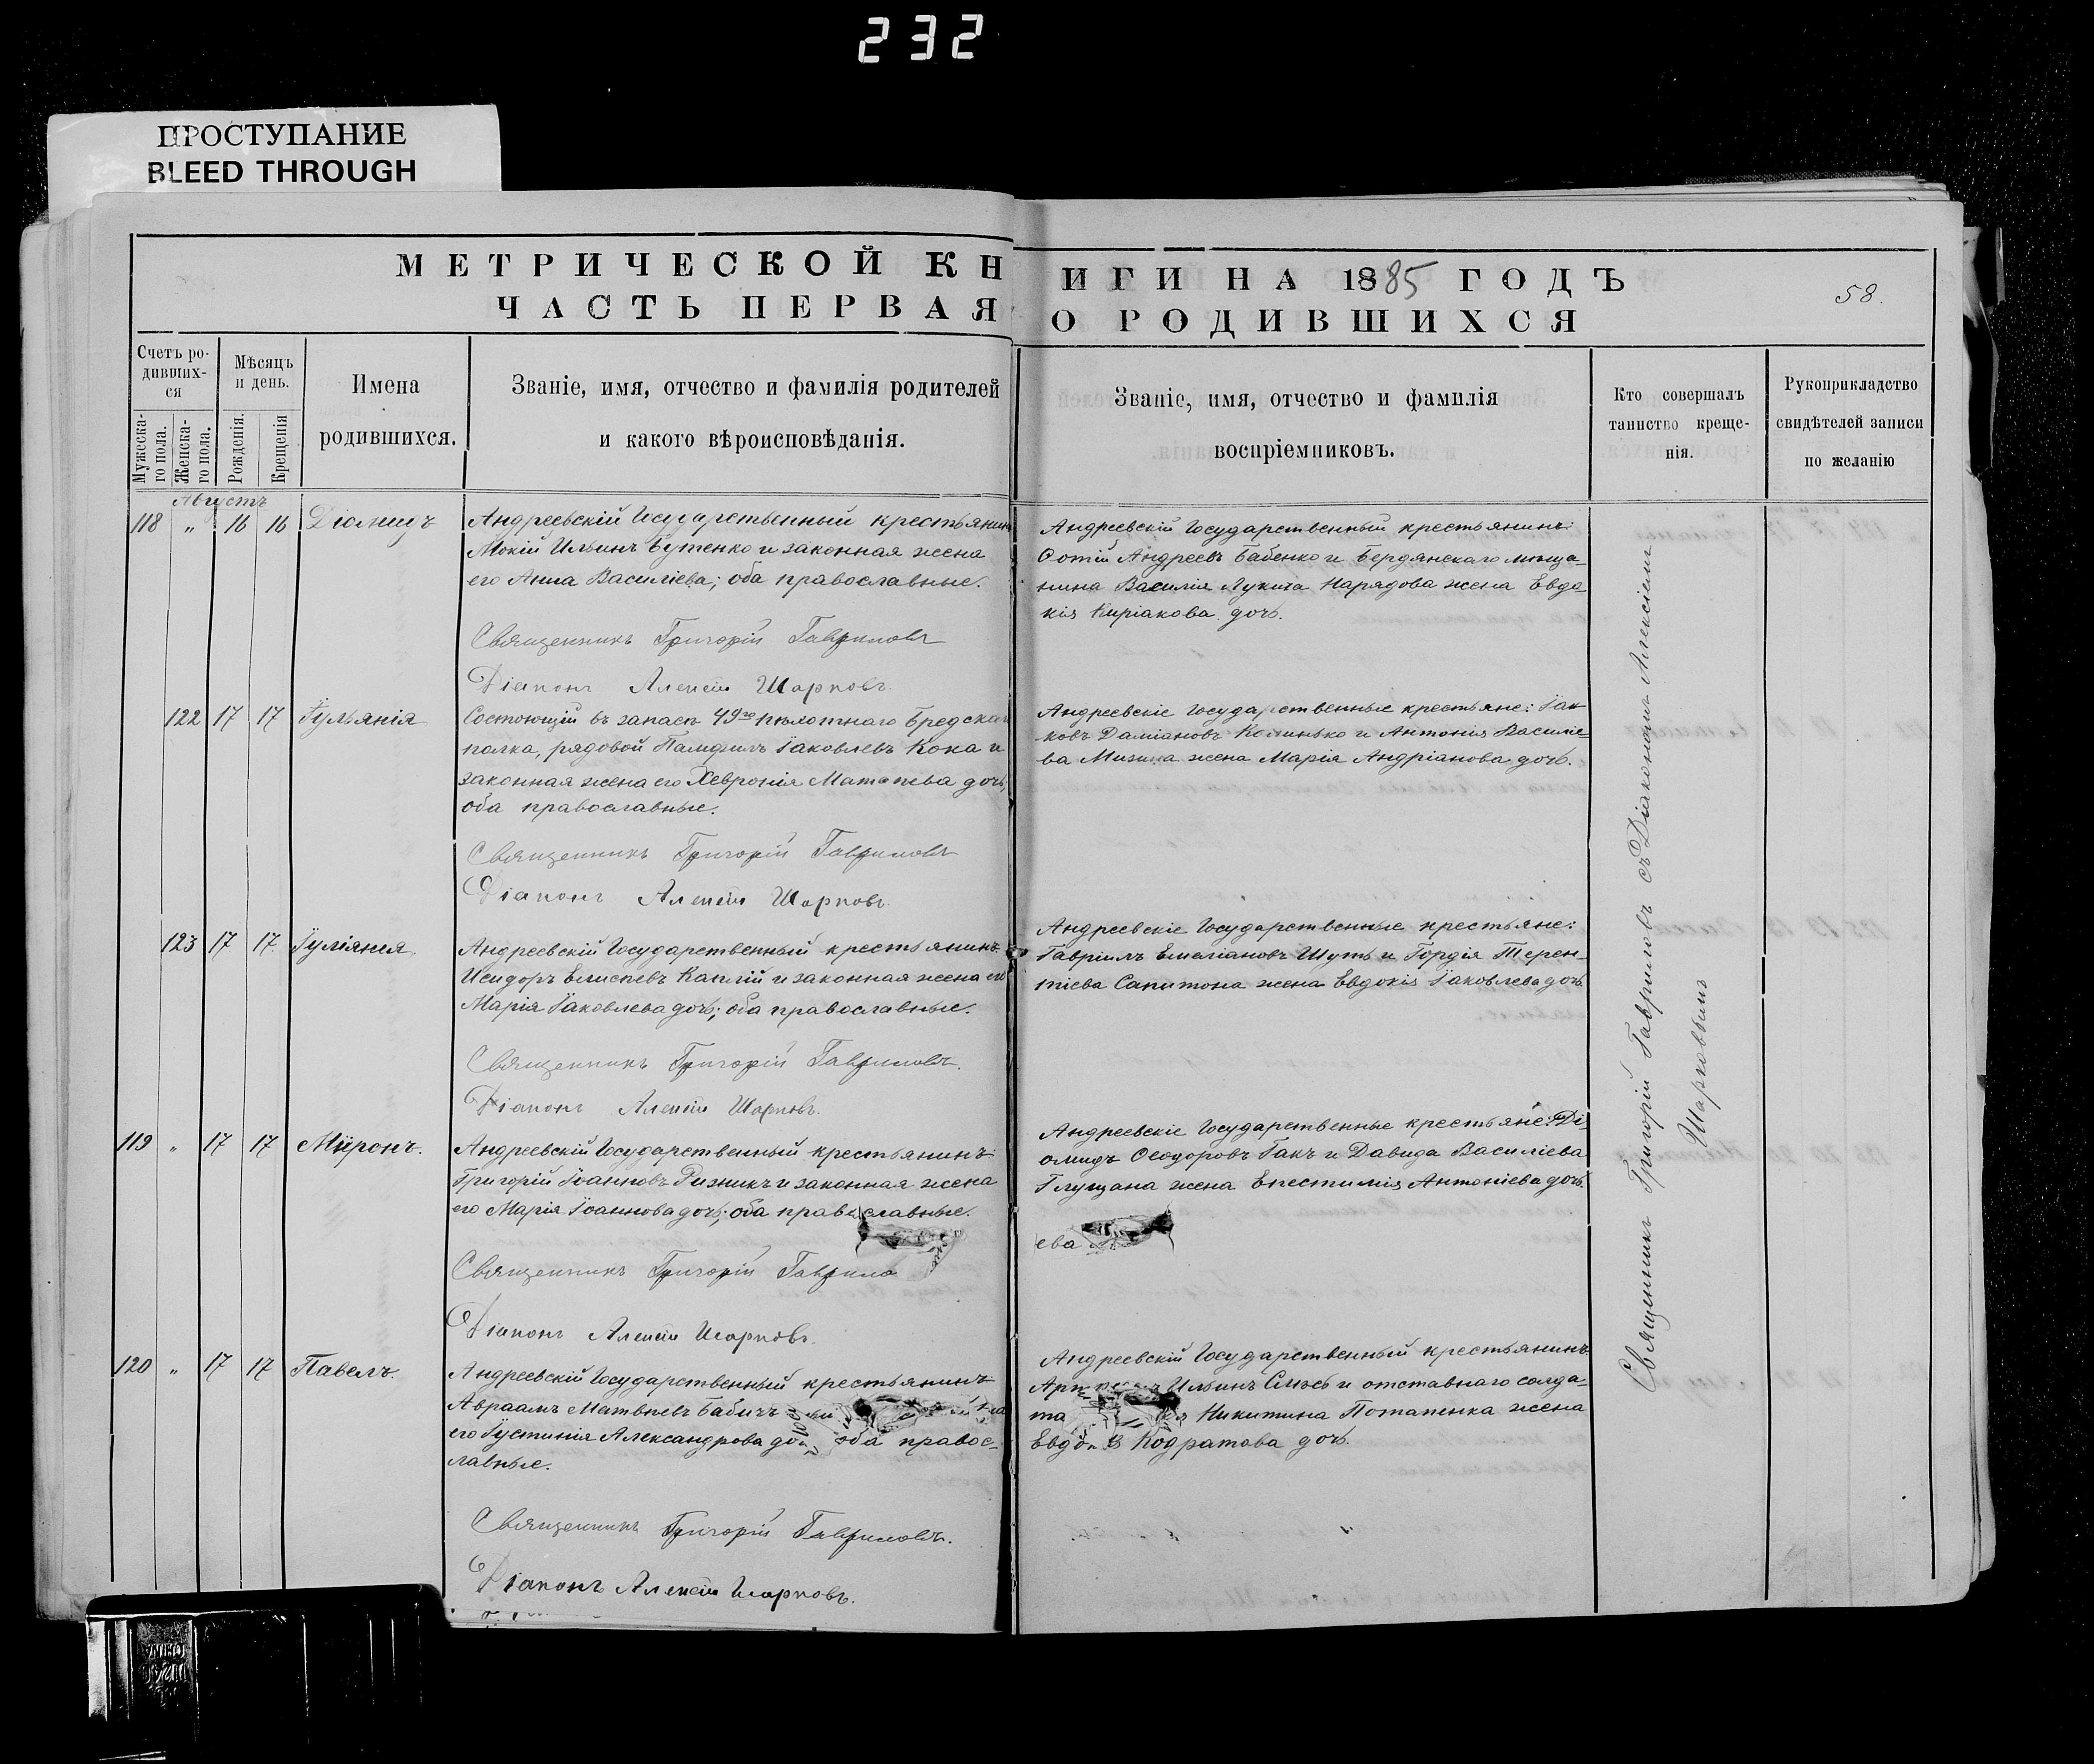 232
ПРОСТУПАНИЕ
BLEED THROUGH
МЕТРИЧЕСКОЙ КНИГИ НА 1885 ГОДЪ
ЧАСТЬ ПЕРВАЯ О РОДИВШИХСЯ
58.
Счетъ ро-
дивших-
ся
Мужеска-
го пола.
Женска-
го пола.
Мѣсяцъ
и день.
Рожденія.
Крещенія
Имена
родившихся.
Званіе, имя, отчество и фамилія родителей
и какого вѣроисповѣданія.
Званіе, имя, отчество и фамилія
воспріемниковъ.
Кто совершалъ
таинство креще-
нія.
Рукоприкладство
свидѣтелей записи
по желанію
Августъ
118 „ 16 16 Діомидъ
Андреевскій Государственный крестьянинъ
Мокій Ильинъ Бутенко и законная жена
его Анна Василіева; оба православные.
Священникъ Григорій Гавриловъ
Діаконъ Алексій Шарковъ.
Андреевскій Государственный крестьянинъ:
Фотій Андреевъ Бабенко и Бердянскаго мѣща-
нина Василія Лукича Нарядова жена Евдо-
кія Киріакова дочь.
122 17 17 Іульянія
Состоющій въ запасѣ 49го пѣхотнаго Бредскаго
полка, рядовой Памфилъ Іаковлевъ Кока и
законная жена его Хевронія Матѳеева дочь,
оба православные.
Священникъ Григорій Гавриловъ
Діаконъ Алексій Шарковъ.
Андреевскіе Государственные крестьяне: Іак-
ковъ Даміановъ и Антонія Василіе-
ва жена Марія Андріанова дочь.
123 17 17 Іуліянія.
Андреевскій Государственный крестьянинъ
Исидоръ Елисѣевъ Каплій и законная жена его
Марія Іаковлева дочь; оба православные.
Священникъ Григорій Гавриловъ.
Діаконъ Алексій Шарковъ.
Андреевскіе Государственные крестьяне:
Гавріилъ Емеліановъ Шуть и Гордія Терен-
тіева Сапитона жена Евдокія Іаковлева дочь
119 „ 17 17 Миронъ.
Андреевскій Государственный крестьянинъ
Григорій Іоанновъ Ризникъ и законная жена
его Марія Іоаннова дочь; оба православные.
Священникъ Григорій Гаврило
Діаконъ Алексій Шарковъ.
Андреевскіе Государственные крестьяне: Ді-
омидъ Ѳеодоровъ Гакъ и Давида Василіева
Глущана жена Епестимія Антоніева дочь.
ева
120 „ 17 17 Павелъ.
Андреевскій Государственный крестьянинъ
Авраамъ Матвѣевъ Бабичъ
его Іустинія Александрова оба правос-
лавные.
Священникъ Григорій Гавриловъ.
Діаконъ Алексій Шарковъ.
Андреевскій Государственный крестьянинъ
Ильинъ и отставнаго солда-
та Никитина Потапенка жена
Кодратова дочь.
Священникъ Григорій Гавриловъ съ Діакономъ Алексіемъ
Шарковымъ